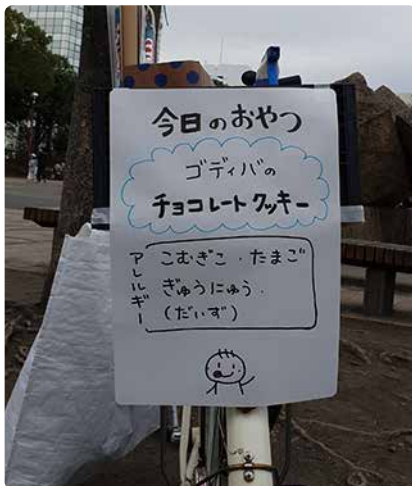 今日のおやつ
ゴディバの
チョコレートクッキー
アレルギー
こむぎこ・たまご
ぎゅうにゅう.
(だいず)